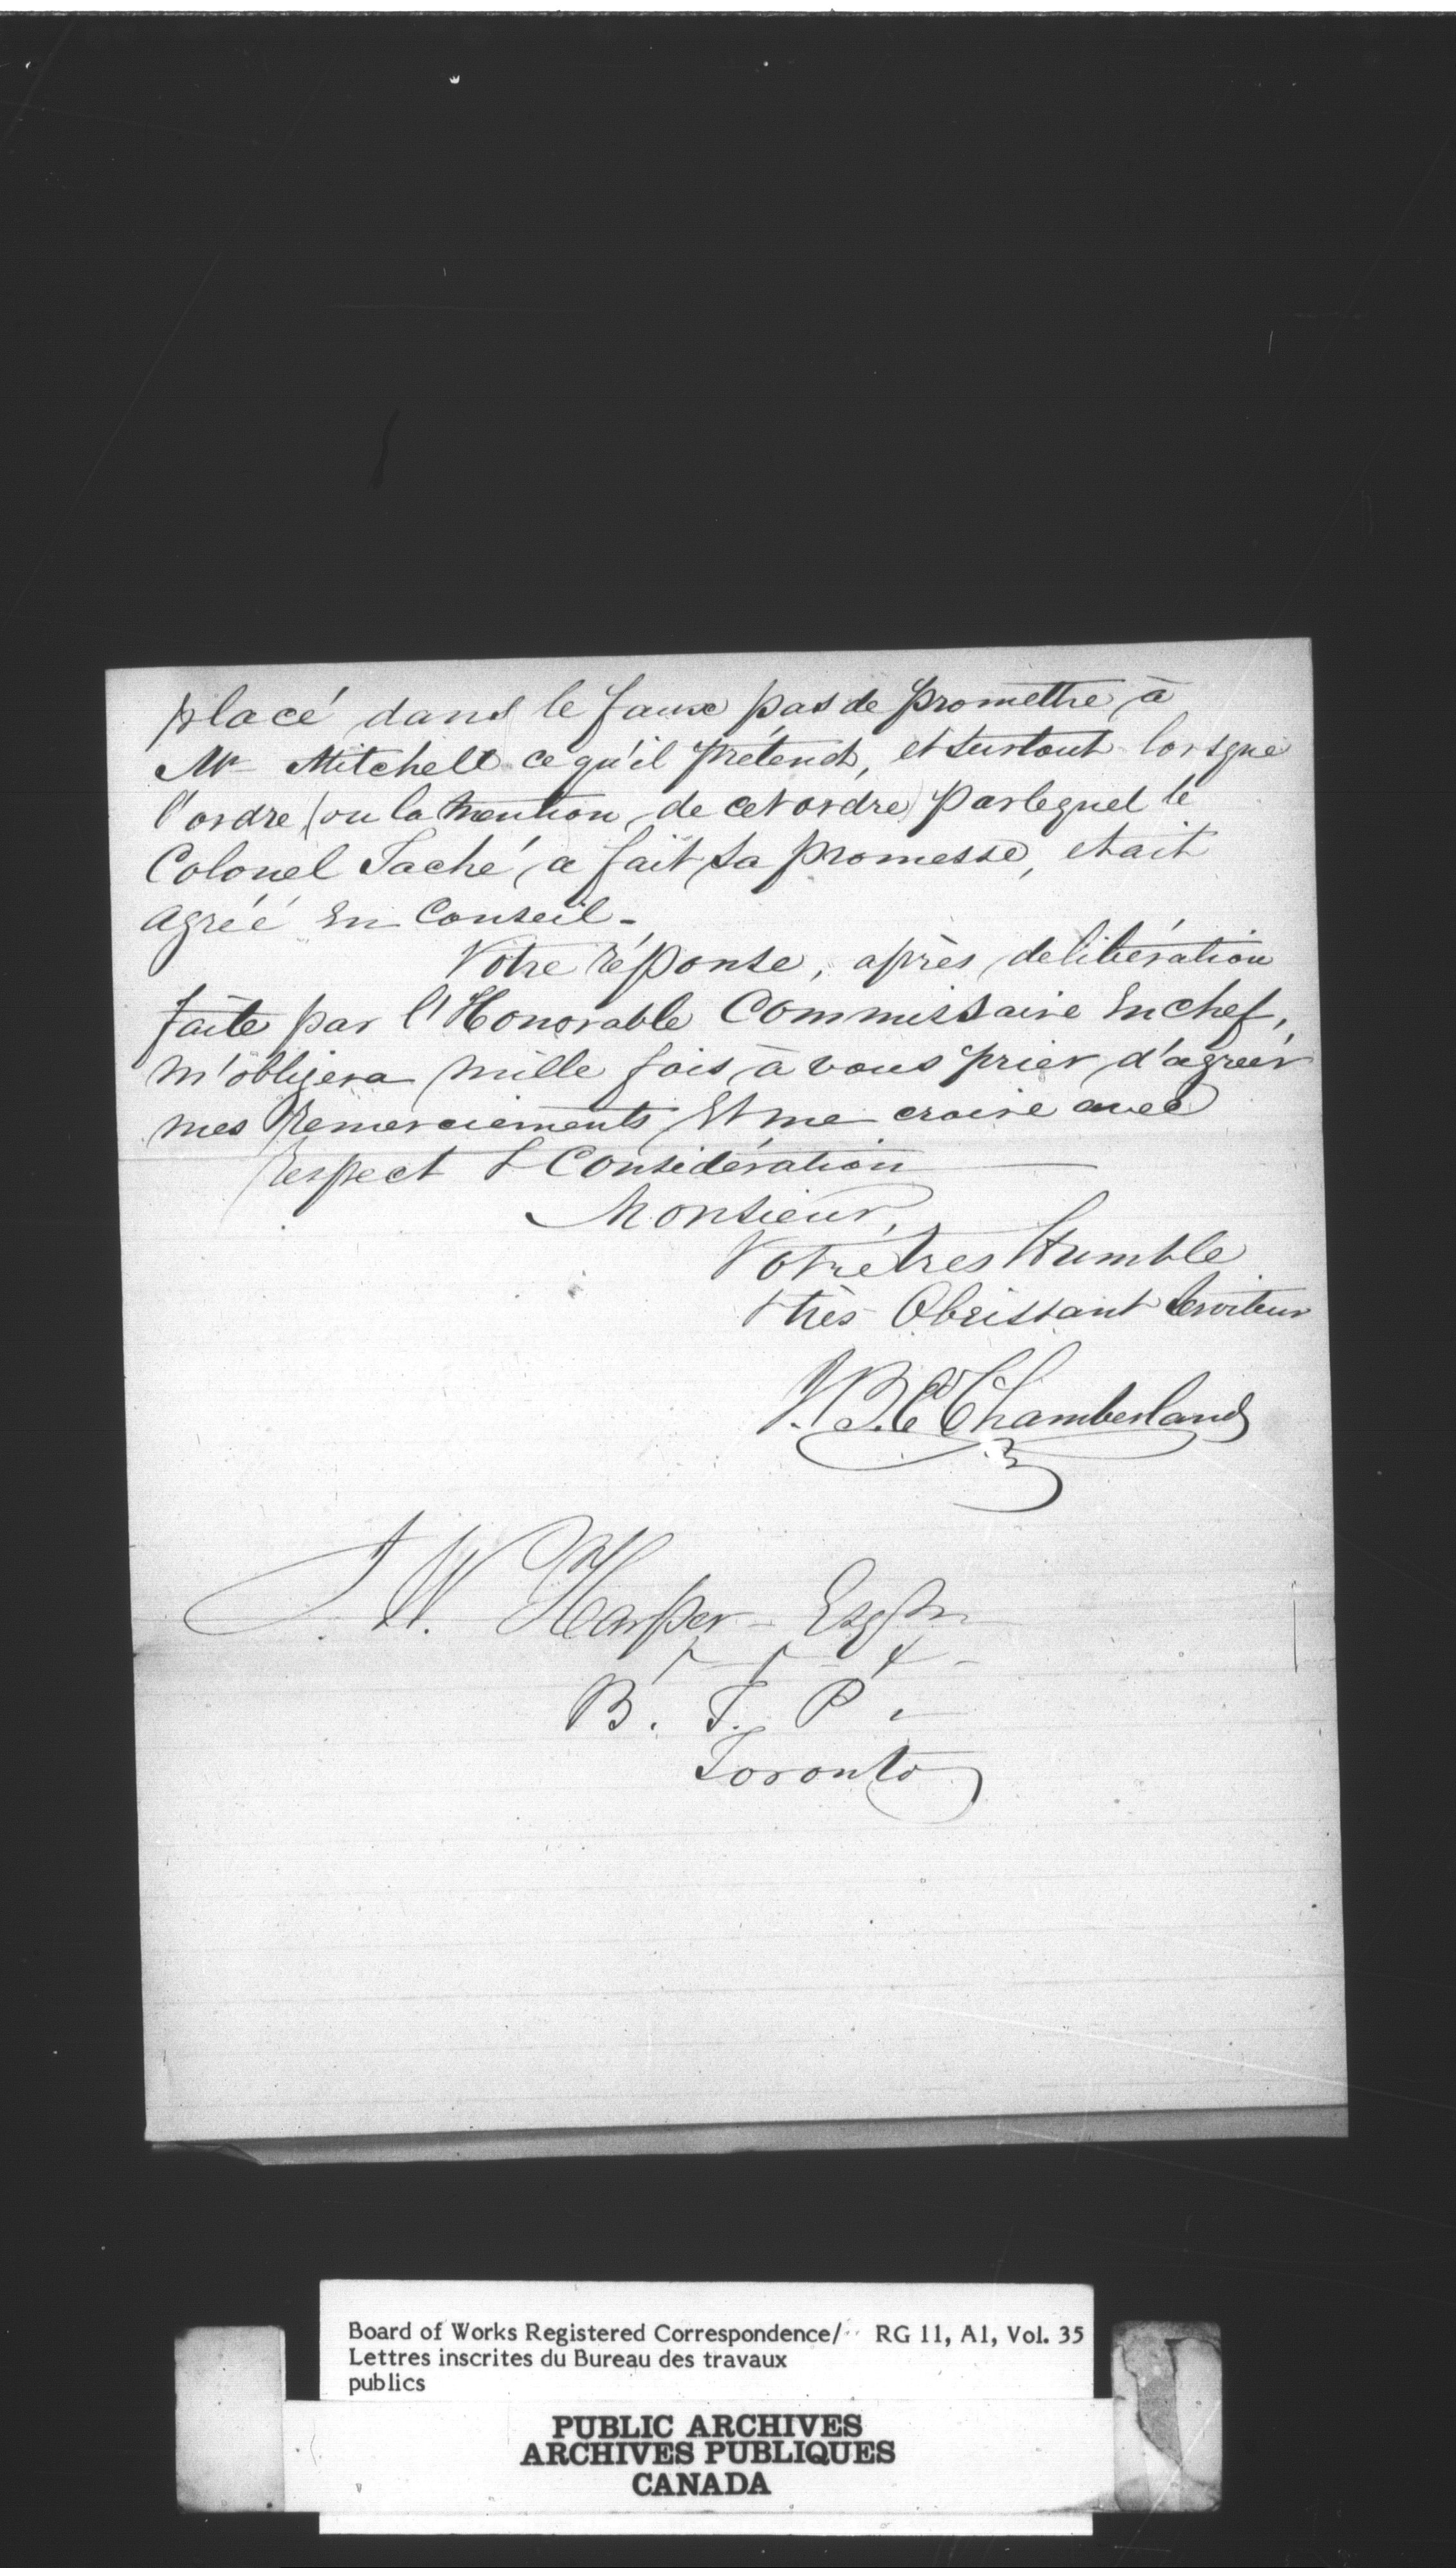 placé dans le faux pas de promettre à
Mr Mitchell ce qu'il prétend, et surtout lorsque
l'ordre (ou la mention de cet ordre) par lequel le
Colonel Taché a fait sa promesse, etait
agréé en Conseil -
Votre réponse, après delibération
faite par l'Honorable Commissaire En chef,
m'obligera mille fois à vous prier d'agréer
mes remerciements Et me croire avec
respect & Considération
Monsieur,
Votre très Humble
& très Obeissant Serviteur
J. B. C Chamberland
J. W. Harper - Esqr
B. T. P.
Toronto
Board of Works Registered Correspondence/ RG 11, A1, Vol. 35
Lettres inscrites du Bureau des travaux
publics
PUBLIC ARCHIVES
ARCHIVES PUBLIQUES
CANADA